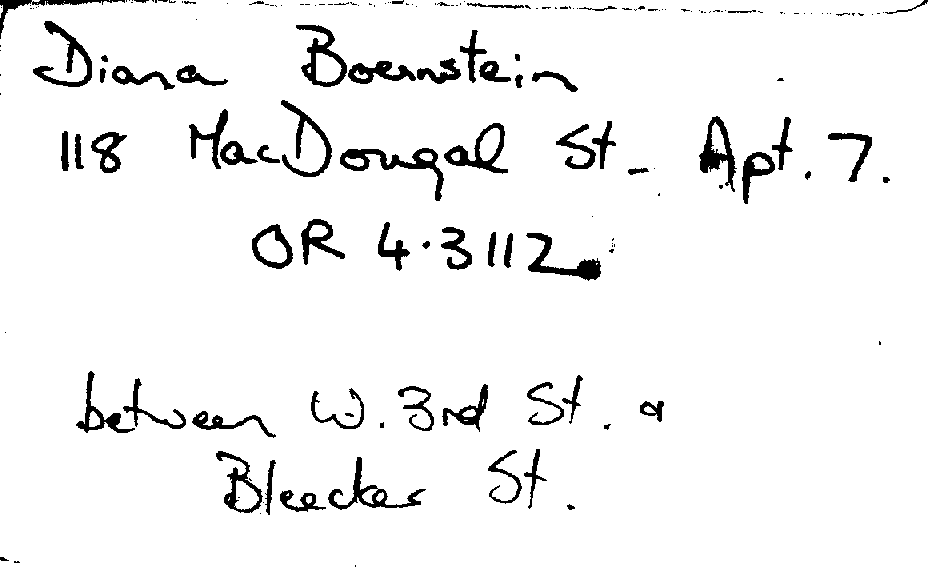 Diana Boernstein
118 MacDougal St. Apt. 7.
OR 4.3112
between W. 3rd St. &
Bleecker St.